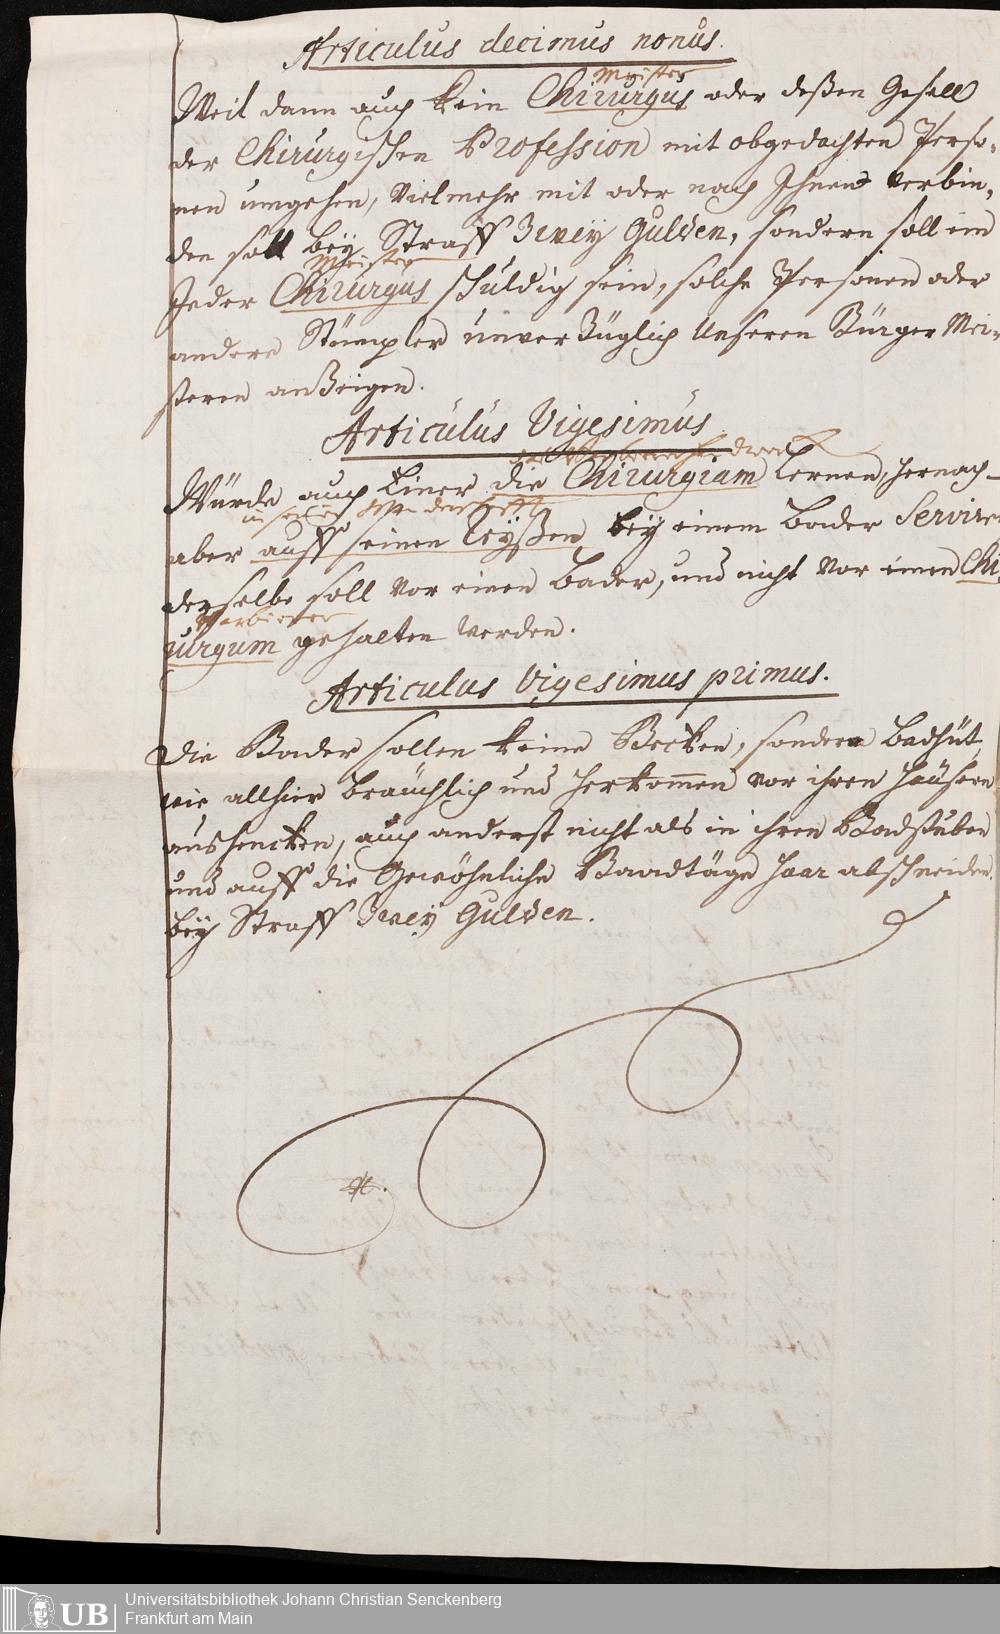 Articulus decimus nonus.
Meister
Weil dann auch kein Chirurgus oder deßen Gesell
der Chirurgischen Profession mit obgedachten Perso-
nen umgehen, Vielmehr mit oder nach Ihnen verbin-
den soll bey Straff Zwey Gulden, sondern soll ein
Meister
Jeder Chirurgus schuldig sein, solche Personen oder
andere Stümpler unverzüglich Unseren Bürger Mei-
steren anzeigen.
Articulus Vigesimus
das Barbierer Handwerck
Würde auch Einer die Chirurgiam Lernen, hernach-
in seiner
aber auff seinen Reyßen bey einem Bader Serviren
derselbe soll vor einen Bader, und nicht vor einen Chi-
Barbierer
rurgum gehalten werden.
Articulus Vigesimus primus.
Die Bader sollen keine Becken, sondern Badhüt,
wie allhier bräuchlich und herkom̄en vor ihren Häusern
aushencken, auch anderst nicht als in ihren Badstuben
und auff die Gewöhnliche Baadtäge Haar abschneiden.
bey Straff Zwey Gulden.
UB
Universitätsbibliothek Johann Christian Senckenberg
Frankfurt am Main